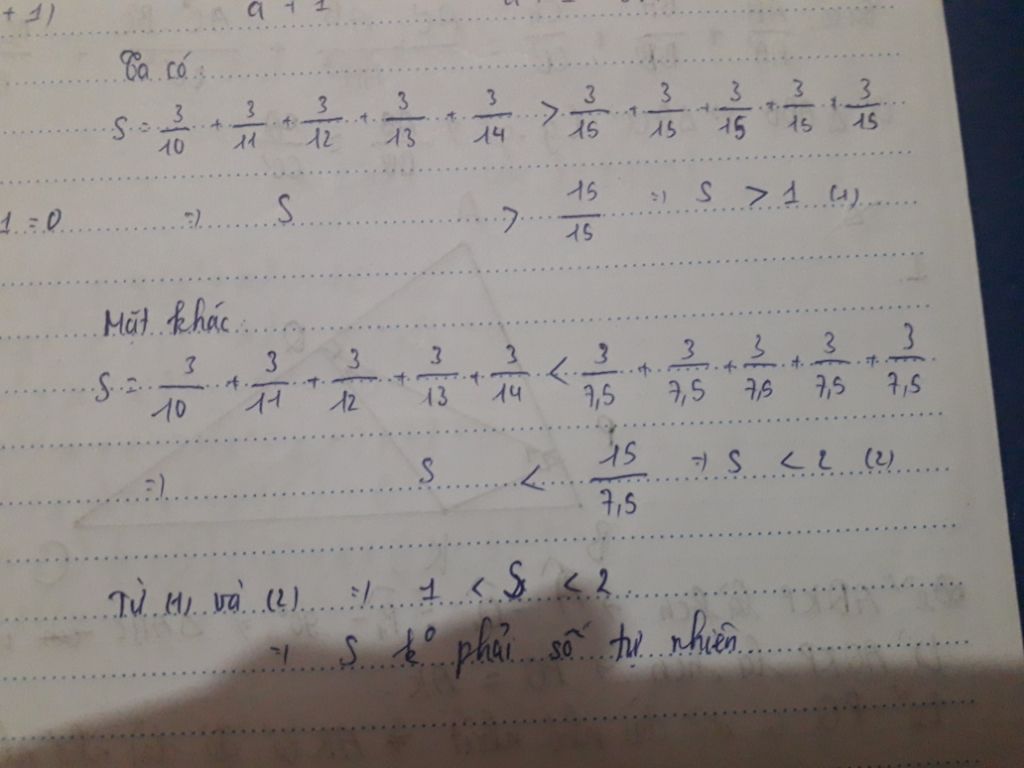 + 1) a + 1
Ta có:
S = 3/10 + 3/11 + 3/12 + 3/13 + 3/14 > 3/15 + 3/15 + 3/15 + 3/15 + 3/15
1 = 0 => S > 15/15 => S > 1 (1)
Mặt khác:
S = 3/10 + 3/11 + 3/12 + 3/13 + 3/14 < 3/7,5 + 3/7,5 + 3/7,5 + 3/7,5 + 3/7,5
=> S < 15/7,5 => S < 2 (2)
Từ (1) và (2) => 1 < S < 2
=> S k° phải số tự nhiên